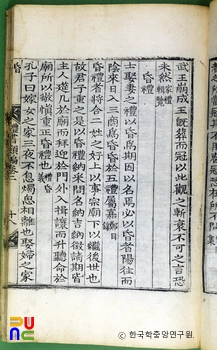 武王崩成王旣葬而冠以此觀之斬衰不可之言恐
未然 家禮輯覽
昏禮
士娶妻之禮以昏爲期因以名焉必以昏者陽往而
陰來日入三商爲昏昏於五禮屬嘉 鄭目
昏禮者將合二姓之好上以事宗廟下以繼後世也
故君子重之是以昏禮納采問名納吉納徵請期皆
主人筵几於廟而拜迎於門外入揖讓而升聽命於
廟所以敬愼重正昏禮也 昏義
孔子曰嫁女之家三夜不息燭思相離也娶婦之家
昏
卷三
十八
한국학중앙연구원